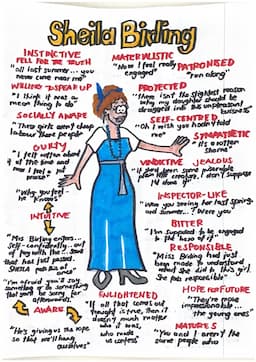 Sheila Birling
INSTINCTIVE
FELL FOR THE TRUTH
"all last summer... you
never came near me"
WILLING TO SPEAK UP
"I think it was a
mean thing to do"
SOCIALLY AWARE
"These girls aren't cheap
labour these people
GUILTY
"I felt rotten about
it at the time and
now I feel a lot
worse"
"Why you fool
he knows"
INTUITIVE
"Miss Birling enters...
that has just passed..
"I'm afraid you'll say
something or do something
that you'll be sorry for
afterwards"
AWARE
"He's giving us the rope
so that we'll hang
ourselves"
MATERIALISTIC
"Now I feel really
engaged"
PATRONISED
"run along"
PROTECTED
"there isn't the slightest reason
why my daughter should be
dragged into this unpleasant
business"
SELF-CENTRED
"Oh I wish you hadn't told
me"
SYMPATHETIC
"It's a rotten
shame"
VINDICTIVE JEALOUS
"If she'd been some miserable
plain little creature, I don't suppose
I'd done it"
INSPECTOR-LIKE
"Were you seeing her last spring
and summer...? Were you"
BITTER
"I'm supposed to be engaged
to the hero of it"
RESPONSIBLE
"Miss Birling had just
been made to understand
what she did to this girl.
She feels responsible"
ENLIGHTENED
"If all that comes out
tonight is true, then it
doesn't much matter
who it was
who made
us confess"
HOPE FOR FUTURE
"They're more
impressionable..
the young ones"
MATURES
"You and I aren't the
same people who